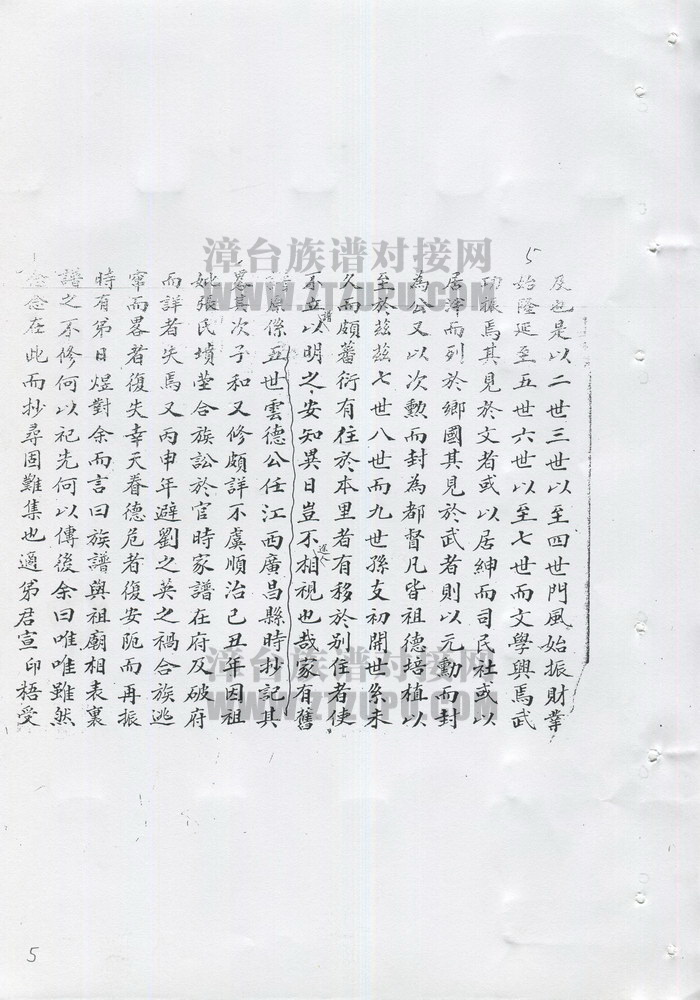 5
及也是以二世三世以至四世門風始振財業
始隆延至五世六世以至七世而文學興焉武
功振焉其見於文者或以居紳而司民社或以
居滓而列於鄉國其見於武者則以元勳而封
為公又以次勲而封為都督凡皆祖德培植以
至於兹兹七世八世而九世孫支初開世系未
久而頗蕃衍有住於本里者有移於别住者使
不立譜以明之安知異日豈不相視也哉家有舊
譜原係五世雲德公任江西廣昌縣時抄記其
畧其次子和又修頗詳不虞順治己丑年因祖
妣張氏墳塋合族訟於官時家譜在府及破府
而詳者失焉又丙申年避劉之英之禍合族逃
竄而畧者復失幸天眷德危者復安阨而再振
時有弟日煜對余而言曰族譜與祖廟相表裏
譜之不修何以祀先何以傳後余曰唯唯雖然
念念在此而抄尋固難集也適弟君宣印梧受
漳台族谱对接网
WWW.ZTZUPU.COM
漳台族谱对接网
WWW.ZTZUPU.COM
5